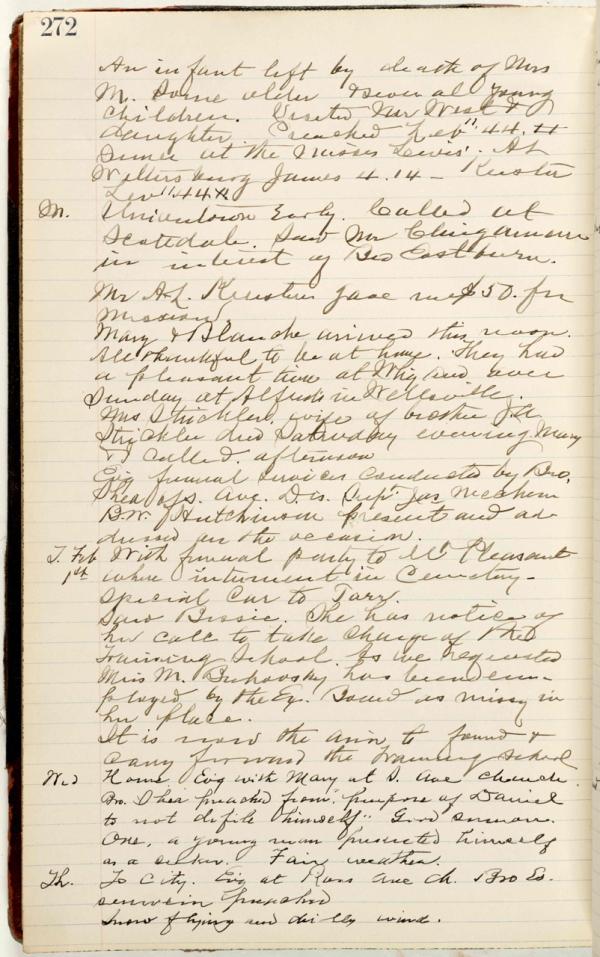 272
An infant left by death of Mrs
M. Some older & several young
children. Visited Mr West &
daughter. Preached Feb
Dinner at the Misses Lewis'. At
James 4.14 -
44
M. Uniontown Early. Called at
Scottdale. Saw Mr Clingerman
in interest of Bro Eastburn.
Mr A.L. gave me $50. for
Missions.
Mary & Blanche arrived this noon.
All thankful to be at home. They had
a pleasant time at and over
Sunday at Alfreds in Wellsville.
Mrs Strickler, wife of brother
Strickler died Saturday evening. Mary
& I called afternoon
Evg funeral services conducted by Bro.
Shea of S. Ave. Dis. Supt. Jas Mechem
B.W. Hutchinson present and ad-
dressed on the occasion.
T. Feb 1st With funeral party to Mt Pleasant
where interment in Cemetery -
Special Car to Tarr.
Saw Bessie. She has notice of
her call to take charge of the
Training School. As we requested
Miss M. has been em-
ployed by the Ex. Board as missy in
her place.
It is now the aim to found &
carry forward the Training School
Wed Home. Evg with Mary at S. Ave church.
Bro. Shea preached from "purpose of Daniel
to not defile himself". Good sermon.
One, a young man presented himself
as a seeker. Fair weather.
Th. To City. Evg at Ross Ave Ch. Bro
preached
Snow flying and chilly wind.